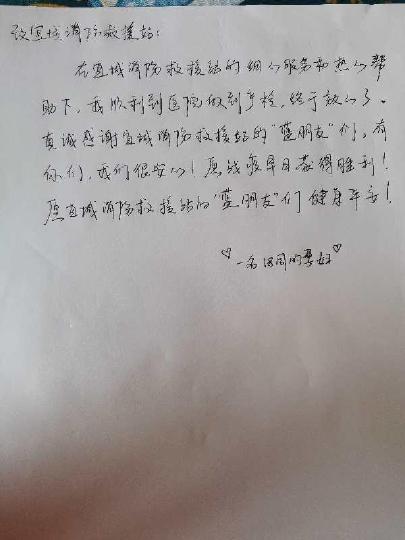 致宜城消防救援站：
在宜城消防救援站的细心服务和热心帮
助下，我顺利到医院做到产检，终于放心了。
真诚感谢宜城消防救援站的“蓝朋友”们，有
你们，我们很安心！愿战疫早日获得胜利！
愿宜城消防救援站的“蓝朋友”们健康平安！
一名18周的孕妇